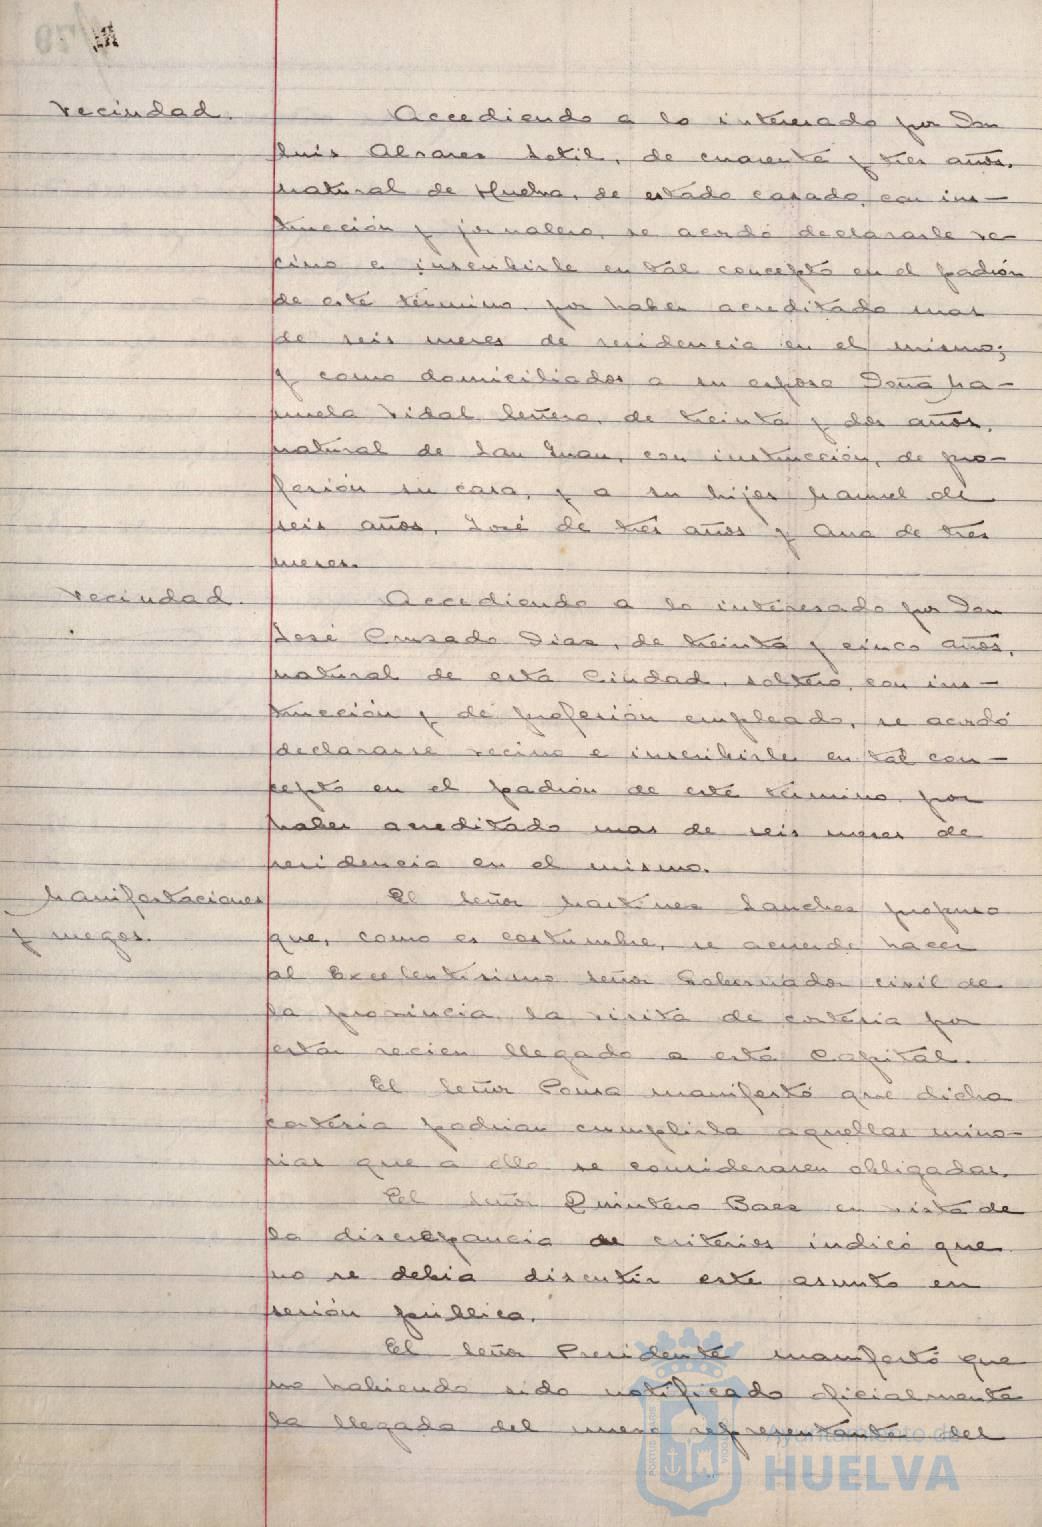 Vecindad.
Accediendo a lo interesado por Don
Luis Alvarez Sotil, de cuarenta y tres años,
natural de Huelva, de estado casado, con ins-
trucción y jornalero, se acordó declararle ve-
cino e inscribirle en tal concepto en el padrón
de este término, por haber acreditado mas
de seis meses de residencia en el mismo;
y como domiciliados a su esposa Doña Ma-
nuela Vidal Señero, de treinta y dos años,
natural de San Juan, con instrucción, de pro-
fesión su casa, y a su hijos Manuel de
seis años, José de tres años y Ana de tres
meses.
Vecindad.
Accediendo a lo interesado por Don
José Cruzado Diaz, de treinta y cinco años,
natural de esta Ciudad, soltero, con ins-
trucción y de profesión empleado, se acordó
declararse vecino e inscribirle en tal con-
cepto en el padrón de este término por
haber acreditado mas de seis meses de
residencia en el mismo.
Manifestaciones
y ruegos.
El señor Martinez Sanchez propuso
que, como es costumbre, se acuerde hacer
al Excelentisimo señor Gobernador civil de
la provincia, la visita de cortesia por
estar recien llegado a esta Capital.
El señor Ponsa manifestó que dicha
cortesia podrian cumplirla aquellas mino-
rias que a ello se considerasen obligadas.
El señor Quintero Baez en vista de
la discrepancia de criterios indicó que
no se debia discutir este asunto en
sesión pública.
El señor Presidente manifestó que
no habiendo sido notificado oficialmente
la llegada del nuevo representante del
Ayuntamiento de
HUELVA